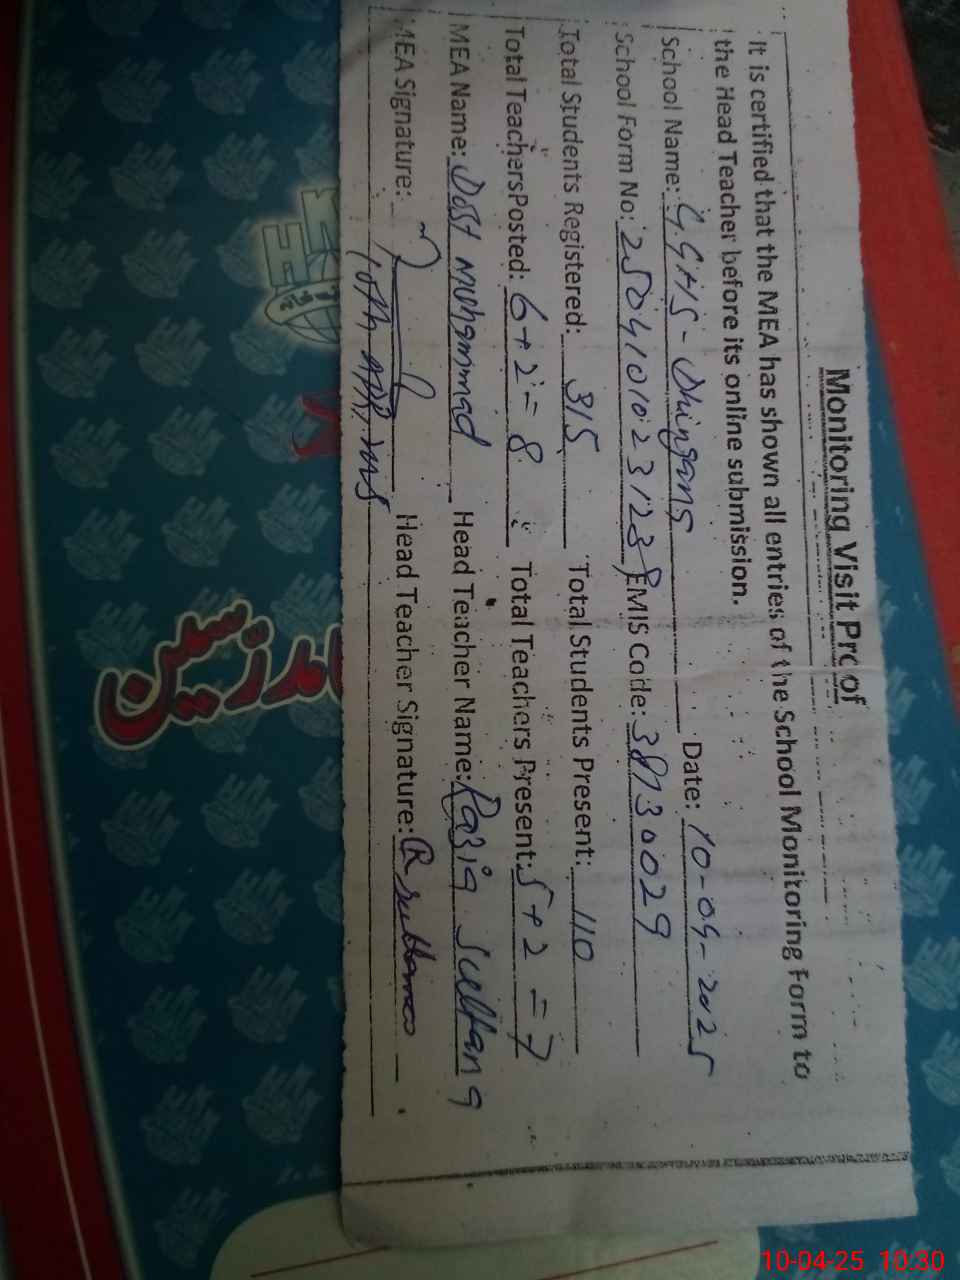 Monitoring Visit Proof
It is certified that the MEA has shown all entries of the School Monitoring Form to
the Head Teacher before its online submission.
School Name: GGHS-Dhingano Date: 10-04-2025
School Form No: 2504101023123 EMIS Code: 38130029
Total Students Registered: 315 Total Students Present: 110
Total Teachers Posted: 6+2=8 Total Teachers Present: 5+2=7
MEA Name: Dost Muhammad Head Teacher Name: Razia Sulltana
MEA Signature: Head Teacher Signature: R sulltana
مدرسین
10-04-25 10:30